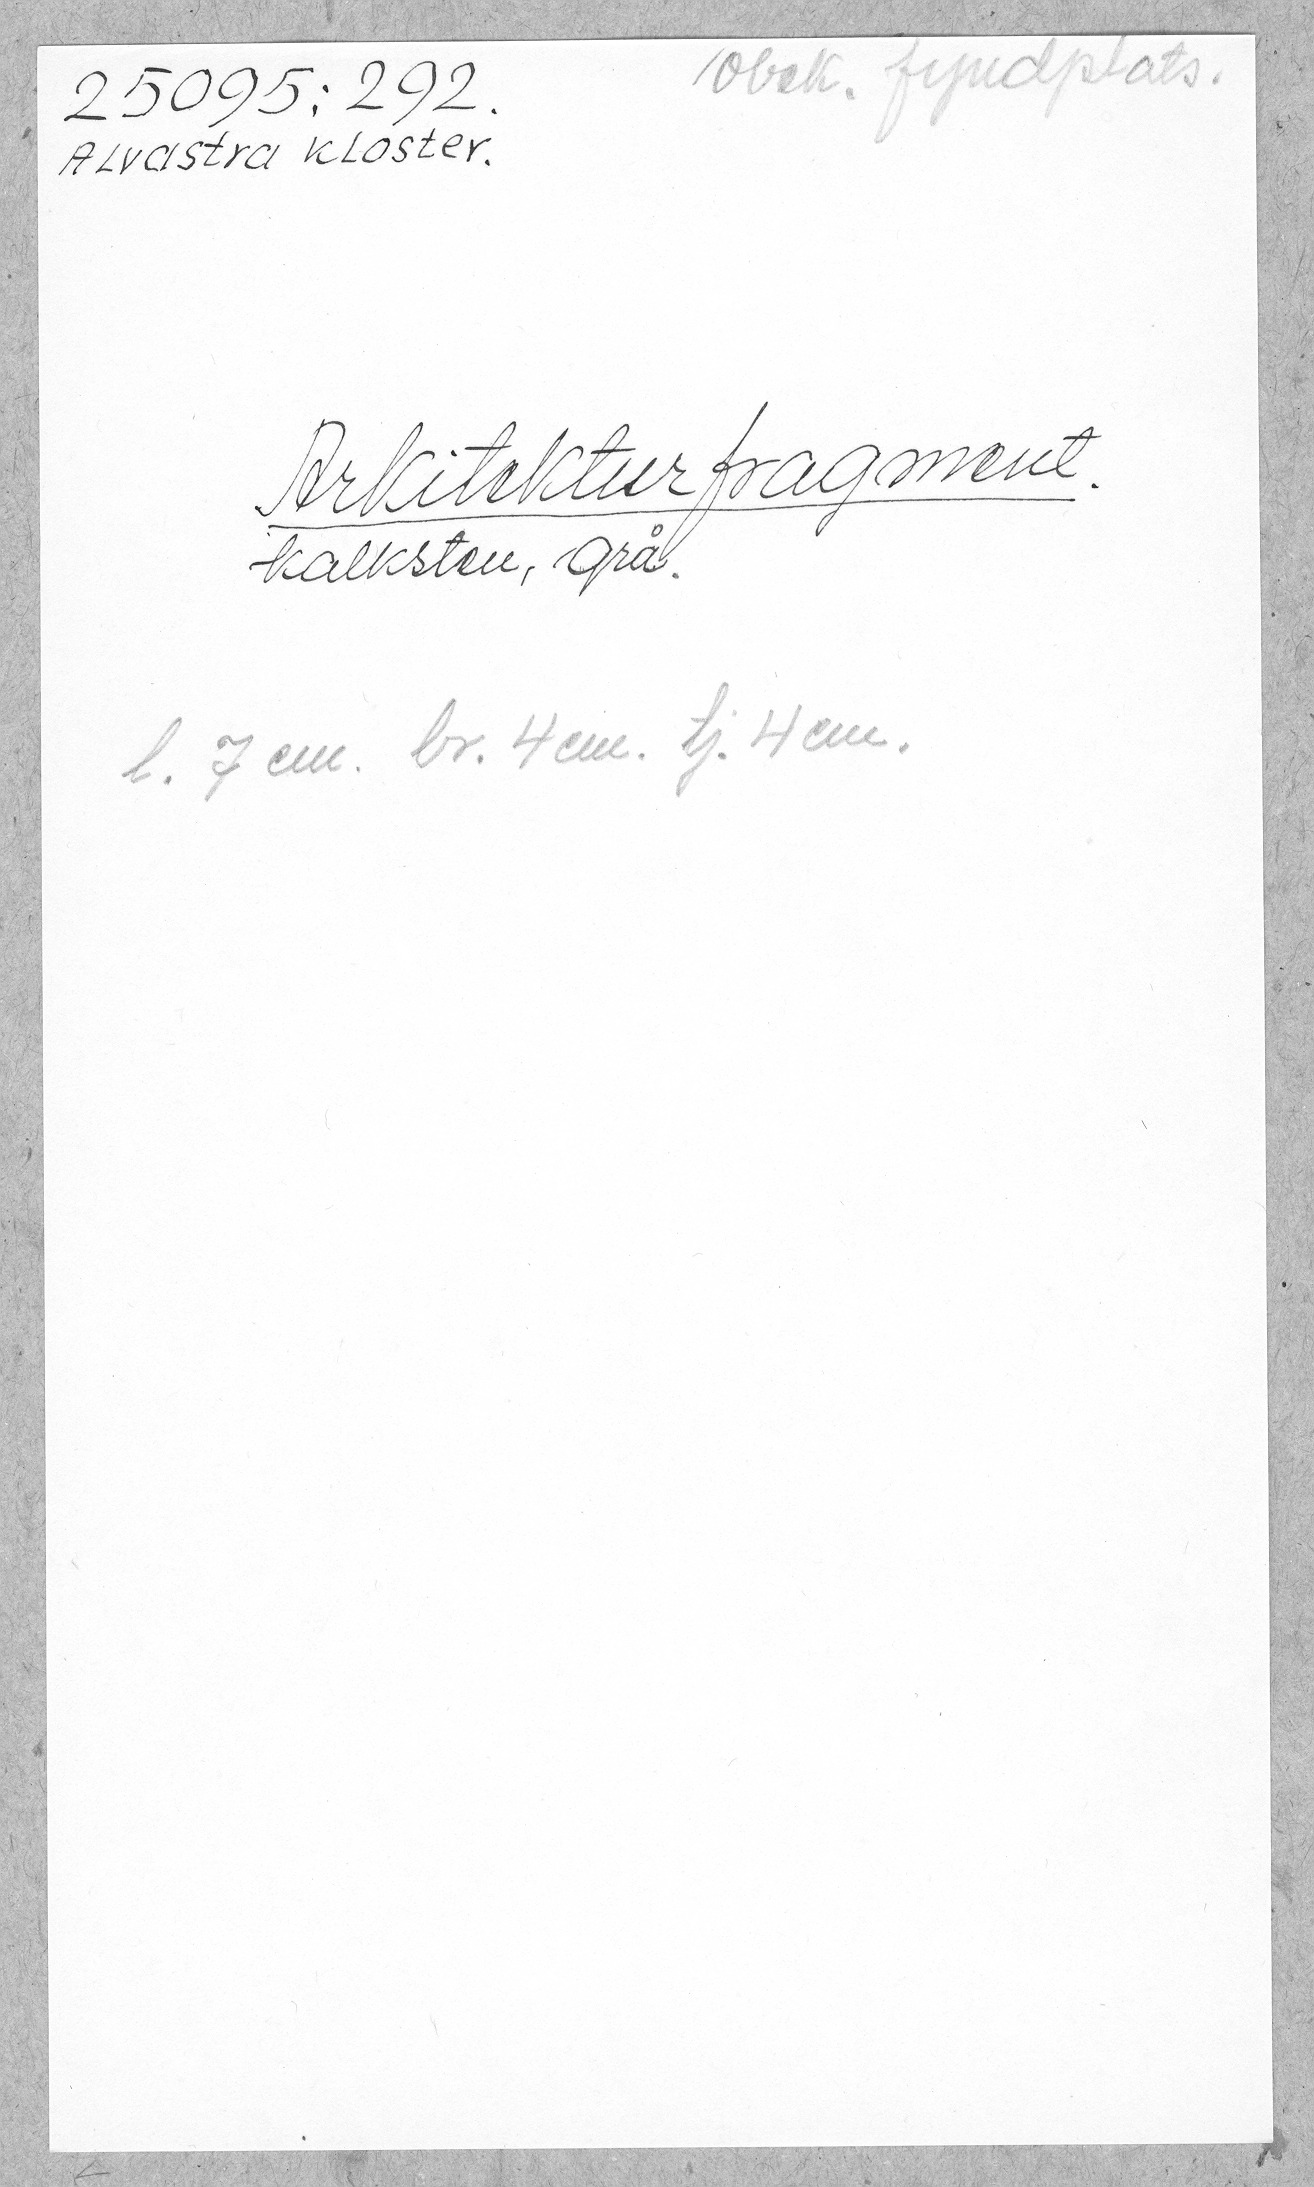 25095:292.
Alvastra kloster.
Obek. fyndplats.
Arkitekturfragment.
kalksten, grå.
l. 7 cm. br. 4 cm. tj. 4 cm.